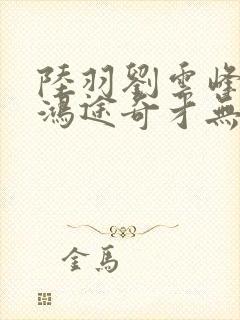 陸羽劉雲峰
鴻途奇才無
金馬